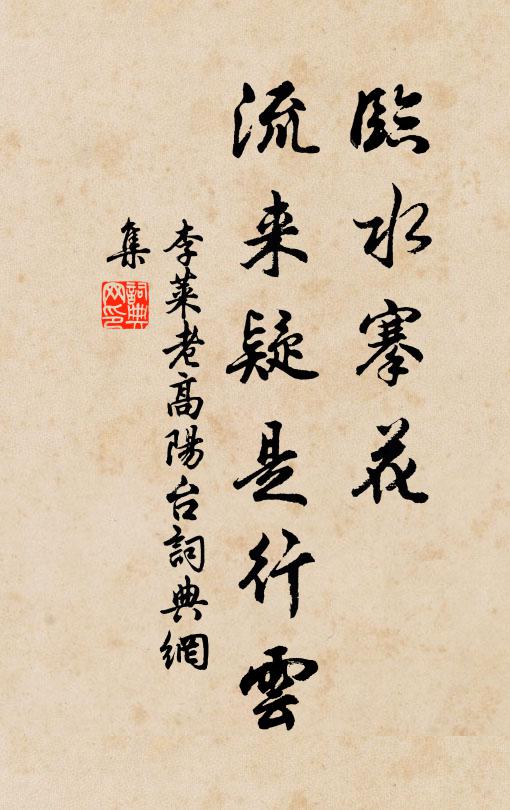 臨水搴花
流来疑是行雲
李莱老高陽台詞典網
集
詞典網印